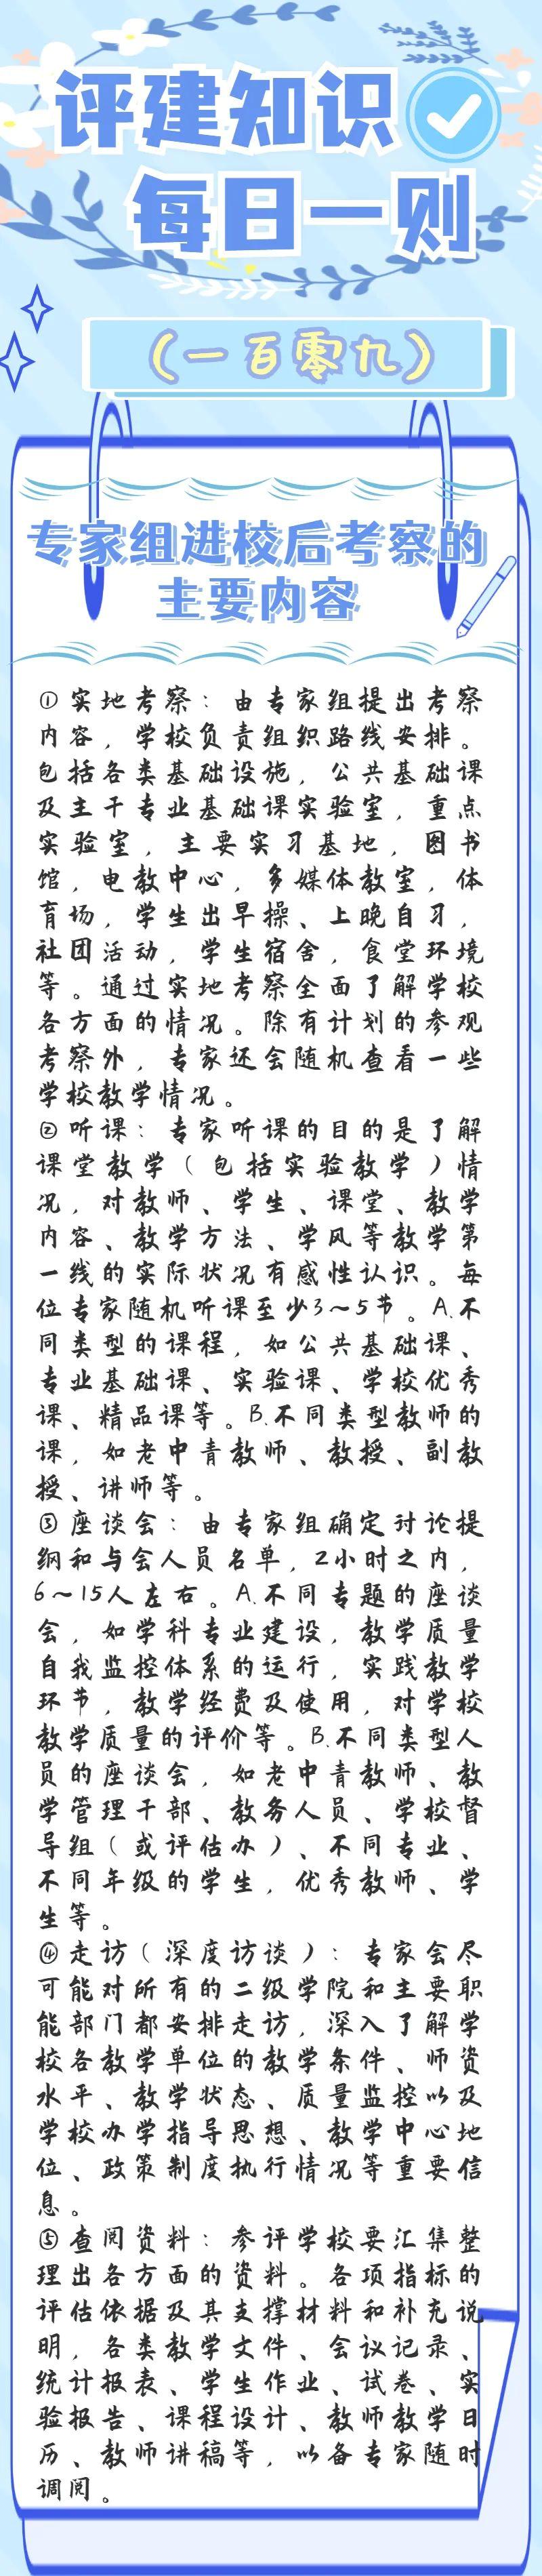 评建知识
每日一则
（一百零九）
专家组进校后考察的
主要内容
①实地考察：由专家组提出考察
内容，学校负责组织路线安排。
包括各类基础设施，公共基础课
及主干专业基础课实验室，重点
实验室，主要实习基地，图书
馆，电教中心，多媒体教室，体
育场，学生出早操、上晚自习，
社团活动，学生宿舍，食堂环境
等。通过实地考察全面了解学校
各方面的情况。除有计划的参观
考察外，专家还会随机查看一些
学校教学情况。
②听课：专家听课的目的是了解
课堂教学（包括实验教学）情
况，对教师、学生、课堂、教学
内容、教学方法、学风等教学第
一线的实际状况有感性认识。每
位专家随机听课至少3～5节。A.不
同类型的课程，如公共基础课、
专业基础课、实验课、学校优秀
课、精品课等。B.不同类型教师的
课，如老中青教师、教授、副教
授、讲师等。
③座谈会：由专家组确定讨论提
纲和与会人员名单，2小时之内，
6～15人左右。A.不同专题的座谈
会，如学科专业建设，教学质量
自我监控体系的运行，实践教学
环节，教学经费及使用，对学校
教学质量的评价等。B.不同类型人
员的座谈会，如老中青教师、教
学管理干部、教务人员、学校督
导组（或评估办）、不同专业、
不同年级的学生，优秀教师、学
生等。
④走访（深度访谈）：专家会尽
可能对所有的二级学院和主要职
能部门都安排走访，深入了解学
校各教学单位的教学条件、师资
水平、教学状态、质量监控以及
学校办学指导思想、教学中心地
位、政策制度执行情况等重要信
息。
⑤查阅资料：参评学校要汇集整
理出各方面的资料。各项指标的
评估依据及其支撑材料和补充说
明，各类教学文件、会议记录、
统计报表、学生作业、试卷、实
验报告、课程设计、教师教学日
历、教师讲稿等，以备专家随时
调阅。